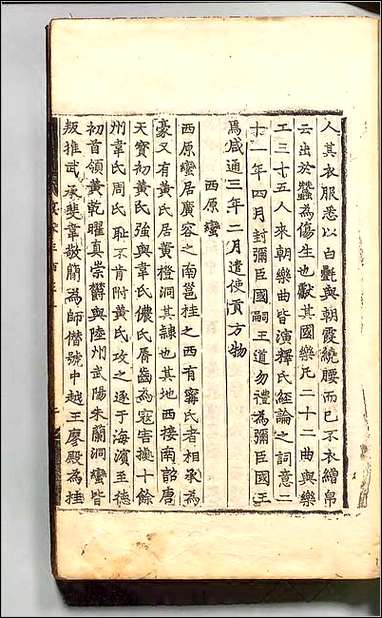 人其衣服悉以白氎與朝霞繞腰而已不衣繒帛
云出於蠶為傷生也獻其國樂凡二十二曲與樂
工三十五人來朝樂曲皆演釋氏経論之詞意二
十一年四月封彌臣國嗣王道勿禮為彌臣國王
焉咸通三年二月遣使貢方物
西原蠻
西原蠻居廣容之南邕桂之西有寧氏者相承為
豪又有黃氏居黃橙洞其隷也其地西接南詔唐
天寶初黃氏強與韋氏儂氏脣齒為寇害攄十餘
州韋氏周氏恥不肯附黃氏攻之逐于海濱至德
初首領黃乾曜真崇欝與陸州武陽朱蘭洞蠻皆
叛推武承斐韋敬蘭為師僭號中越王廖殿為桂